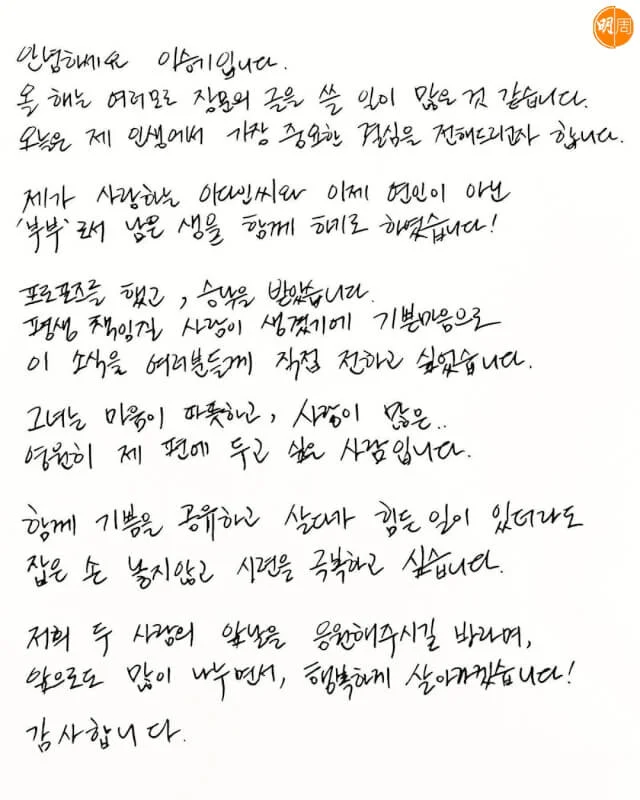 明周
안녕하세요 이승기입니다.
올 해는 여러모로 장문의 글을 쓸 일이 많은 것 같습니다.
오늘은 제 인생에서 가장 중요한 결심을 전해드리고자 합니다.
제가 사랑하는 이다인씨와 이제 연인이 아닌
'부부'로서 남은 생을 함께 하기로 하였습니다!
프로포즈를 했고, 승낙을 받았습니다.
평생 책임질 사람이 생겼기에 기쁜마음으로
이 소식을 여러분들께 직접 전하고 싶었습니다.
그녀는 마음이 따뜻하고, 사랑이 많은..
영원히 제 편에 두고 싶은 사람입니다.
함께 기쁨을 공유하고 살다가 힘든 일이 있더라도
잡은 손 놓지않고 시련을 극복하고 싶습니다.
저희 두 사람의 앞날을 응원해주시길 바라며,
앞으로도 많이 나누면서, 행복하게 살아가겠습니다!
감사합니다.